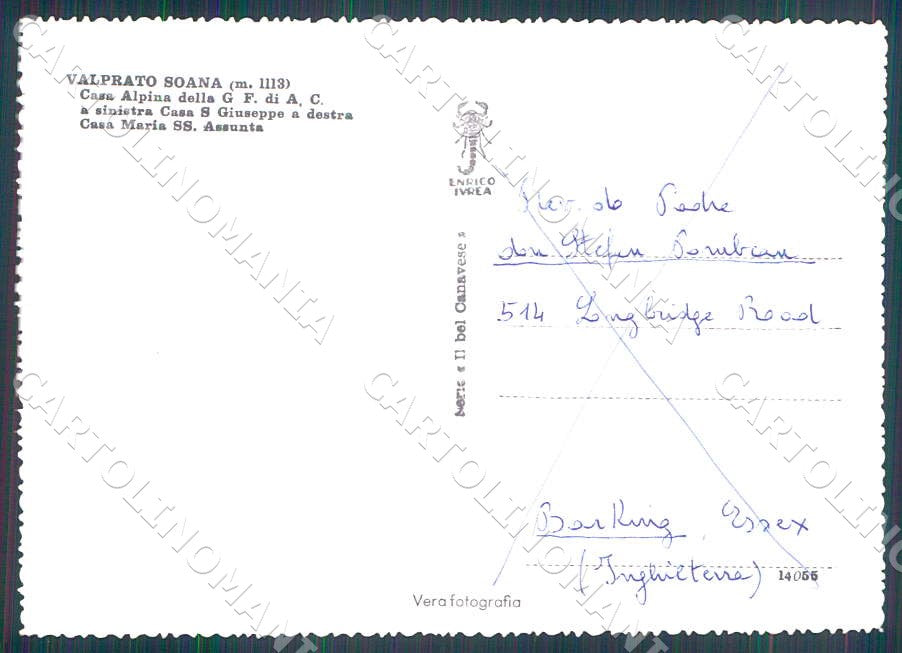 VALPRATO SOANA (m. 1113)
Casa Alpina della G F. di A. C.
a sinistra Casa S Giuseppe a destra
Casa Maria SS. Assunta
ENRICO
IVREA
Serie « Il bel Canavese »
Rev.do Padre
don Stefan
514 Longbridge Road
Barking Essex
(Inghilterra)
14055
Vera fotografia
CARTOLINOMANIA
CARTOLINOMANIA
CARTOLINOMANIA
CARTOLINOMANIA
CARTOLINOMANIA
CARTOLINOMANIA